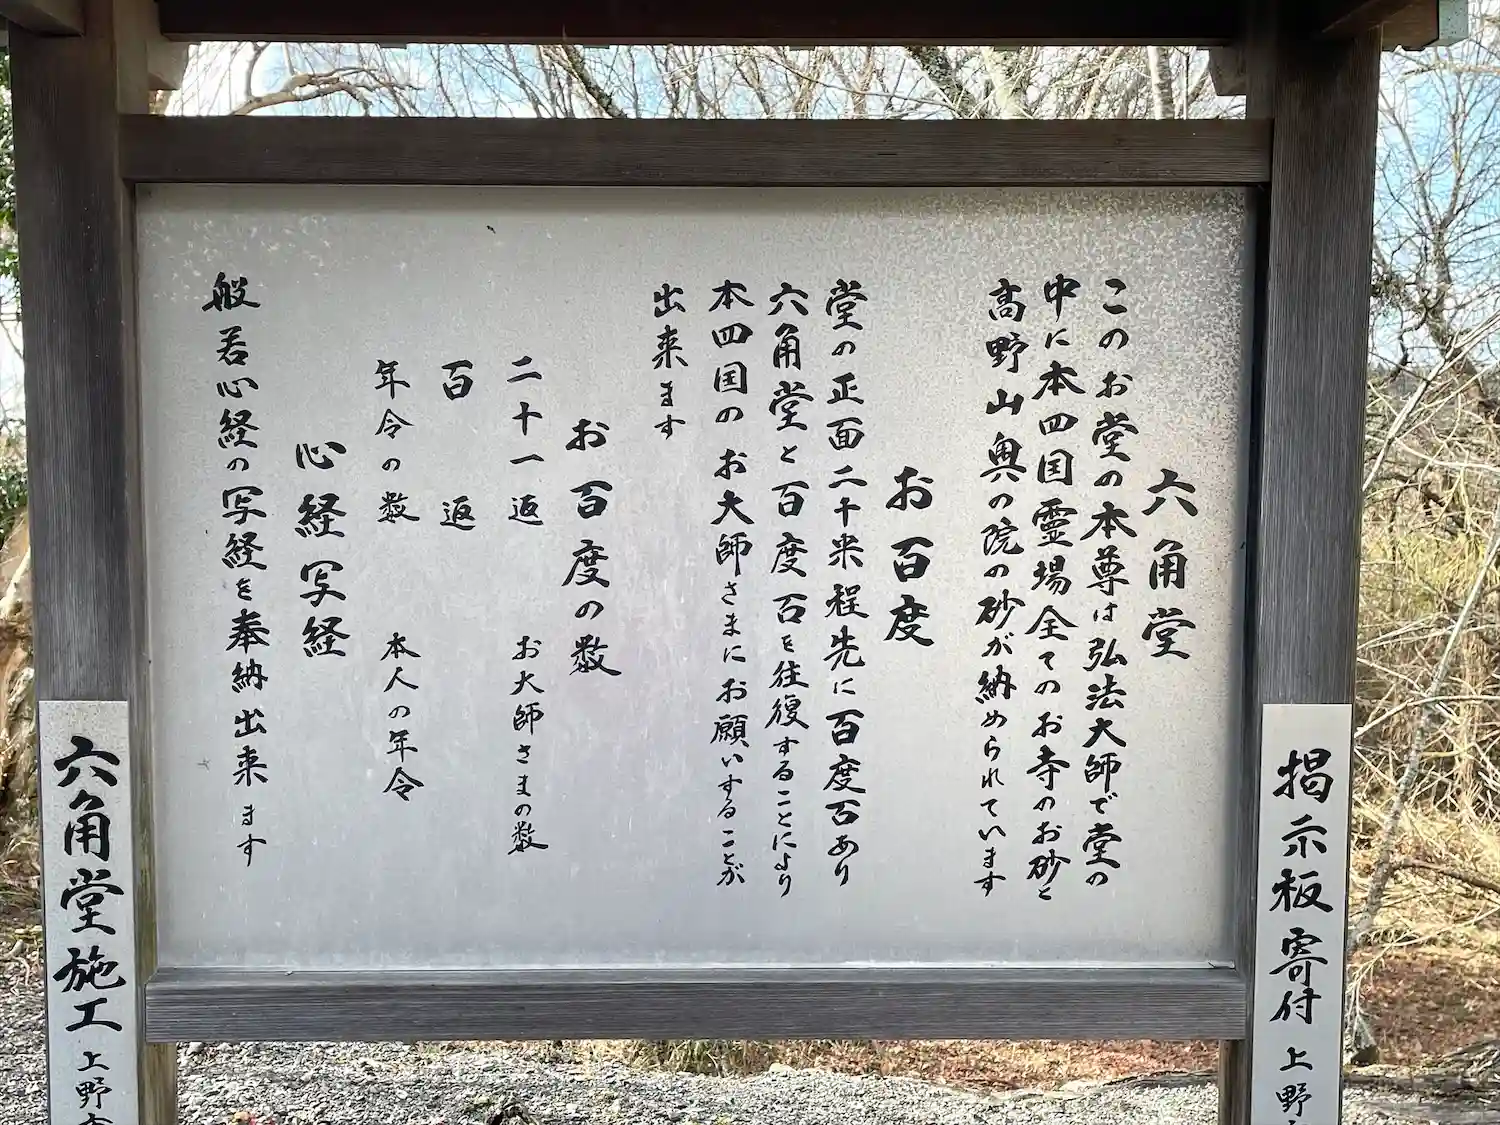 六角堂
このお堂の本尊は弘法大師で堂の
中に本四国霊場全てのお寺のお砂と
高野山奥の院の砂が納められています
お百度
堂の正面二千米程先に百度石あり
六角堂と百度石を往復することにより
本四国のお大師さまにお願いすることが
出来ます
お百度の数
二十一返 お大師さまの数
百返
年令の数 本人の年令
心経写経
般若心経の写経を奉納出来ます
掲示板寄付 上野
六角堂施工 上野